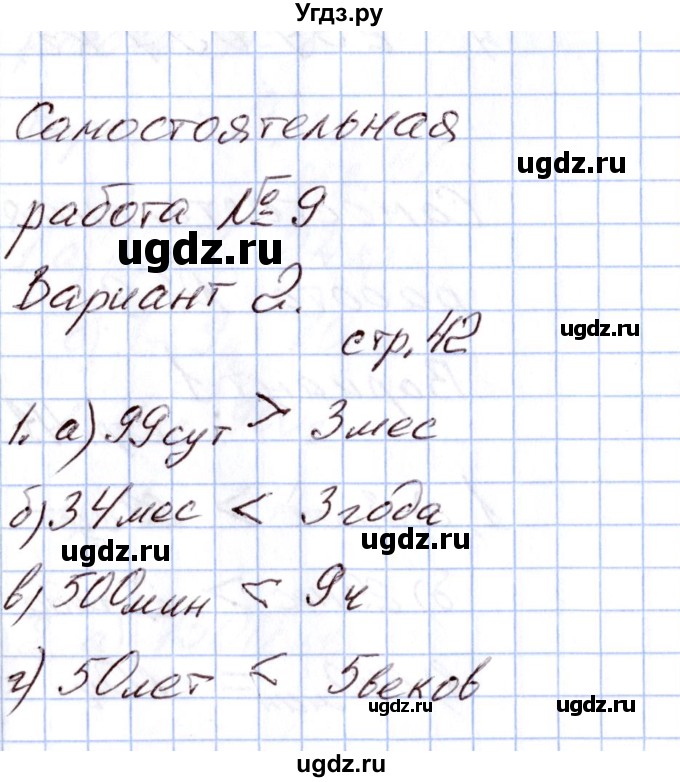 Угдз.ру
Самостоятельная
ugdz.ru
работа № 9
ugdz.ru
Вариант 2.
ugdz.ru
стр. 42
1. а) 99сут > 3мес
б) 34мес < 3года
ugdz.ru
ugdz.ru
в) 500мин < 9ч
г) 50лет < 5веков
ugdz.ru
ugdz.ru
ugdz.ru